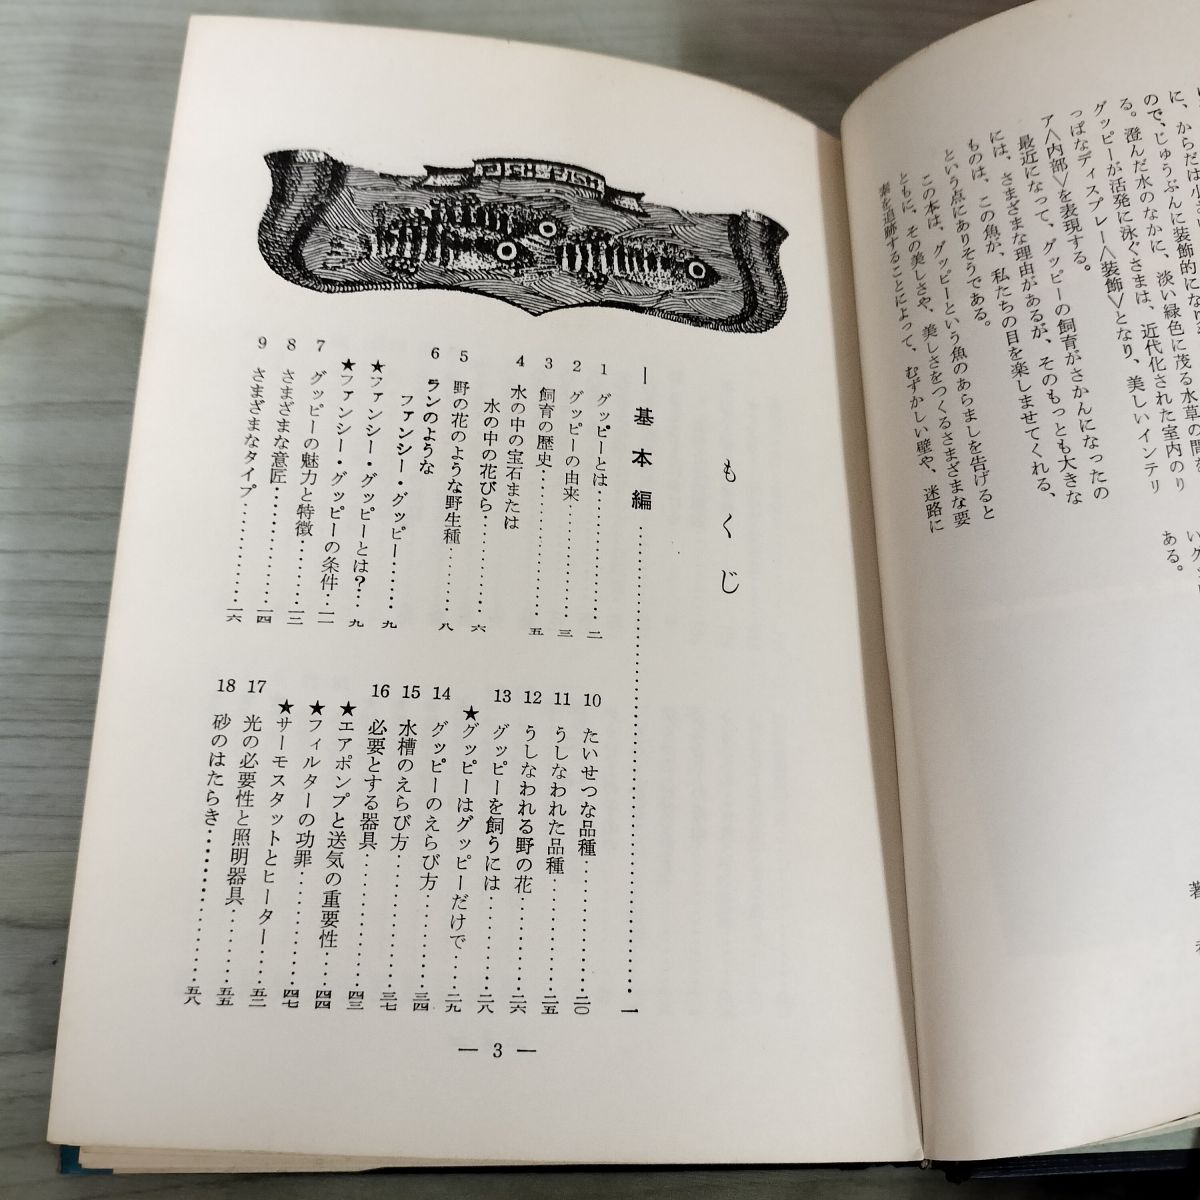 り
に、からだは小
ので、じゅうぶんに装飾的になり
る。澄んだ水のなかに、淡い緑色に茂る水草の間を
グッピーが活発に泳ぐさまは、近代化された室内のり
っぱなディスプレー〈装飾〉となり、美しいインテリ
ア〈内部〉を表現する。
最近になって、グッピーの飼育がさかんになったの
には、さまざまな理由があるが、そのもっとも大きな
ものは、この魚が、私たちの目を楽しませてくれる、
という点にありそうである。
この本は、グッピーという魚のあらましを告げると
ともに、その美しさや、美しさをつくるさまざまな要
素を追跡することによって、むずかしい壁や、迷路に
ある。
著
もくじ
― 基本編……………………一
1 グッピーとは……………二
2 グッピーの由来…………三
3 飼育の歴史………………五
4 水の中の宝石または
水の中の花びら……………六
5 野の花のような野生種……八
6 ランのような
ファンシー・グッピー……九
★ファンシー・グッピーとは?…九
★ファンシー・グッピーの条件…一一
7 グッピーの魅力と特徴……一二
8 さまざまな意匠……………一四
9 さまざまなタイプ…………一六
10 たいせつな品種…………二〇
11 うしなわれた品種………二五
12 うしなわれる野の花……二六
13 グッピーを飼うには……二八
★グッピーはグッピーだけで…二九
14 グッピーのえらび方……三四
15 水槽のえらび方…………三七
16 必要とする器具…………四三
★エアポンプと送気の重要性…四四
★フィルターの功罪…………四七
★サーモスタットとヒーター…五二
17 光の必要性と照明器具……五五
18 砂のはたらき……………五八
― 3 ―